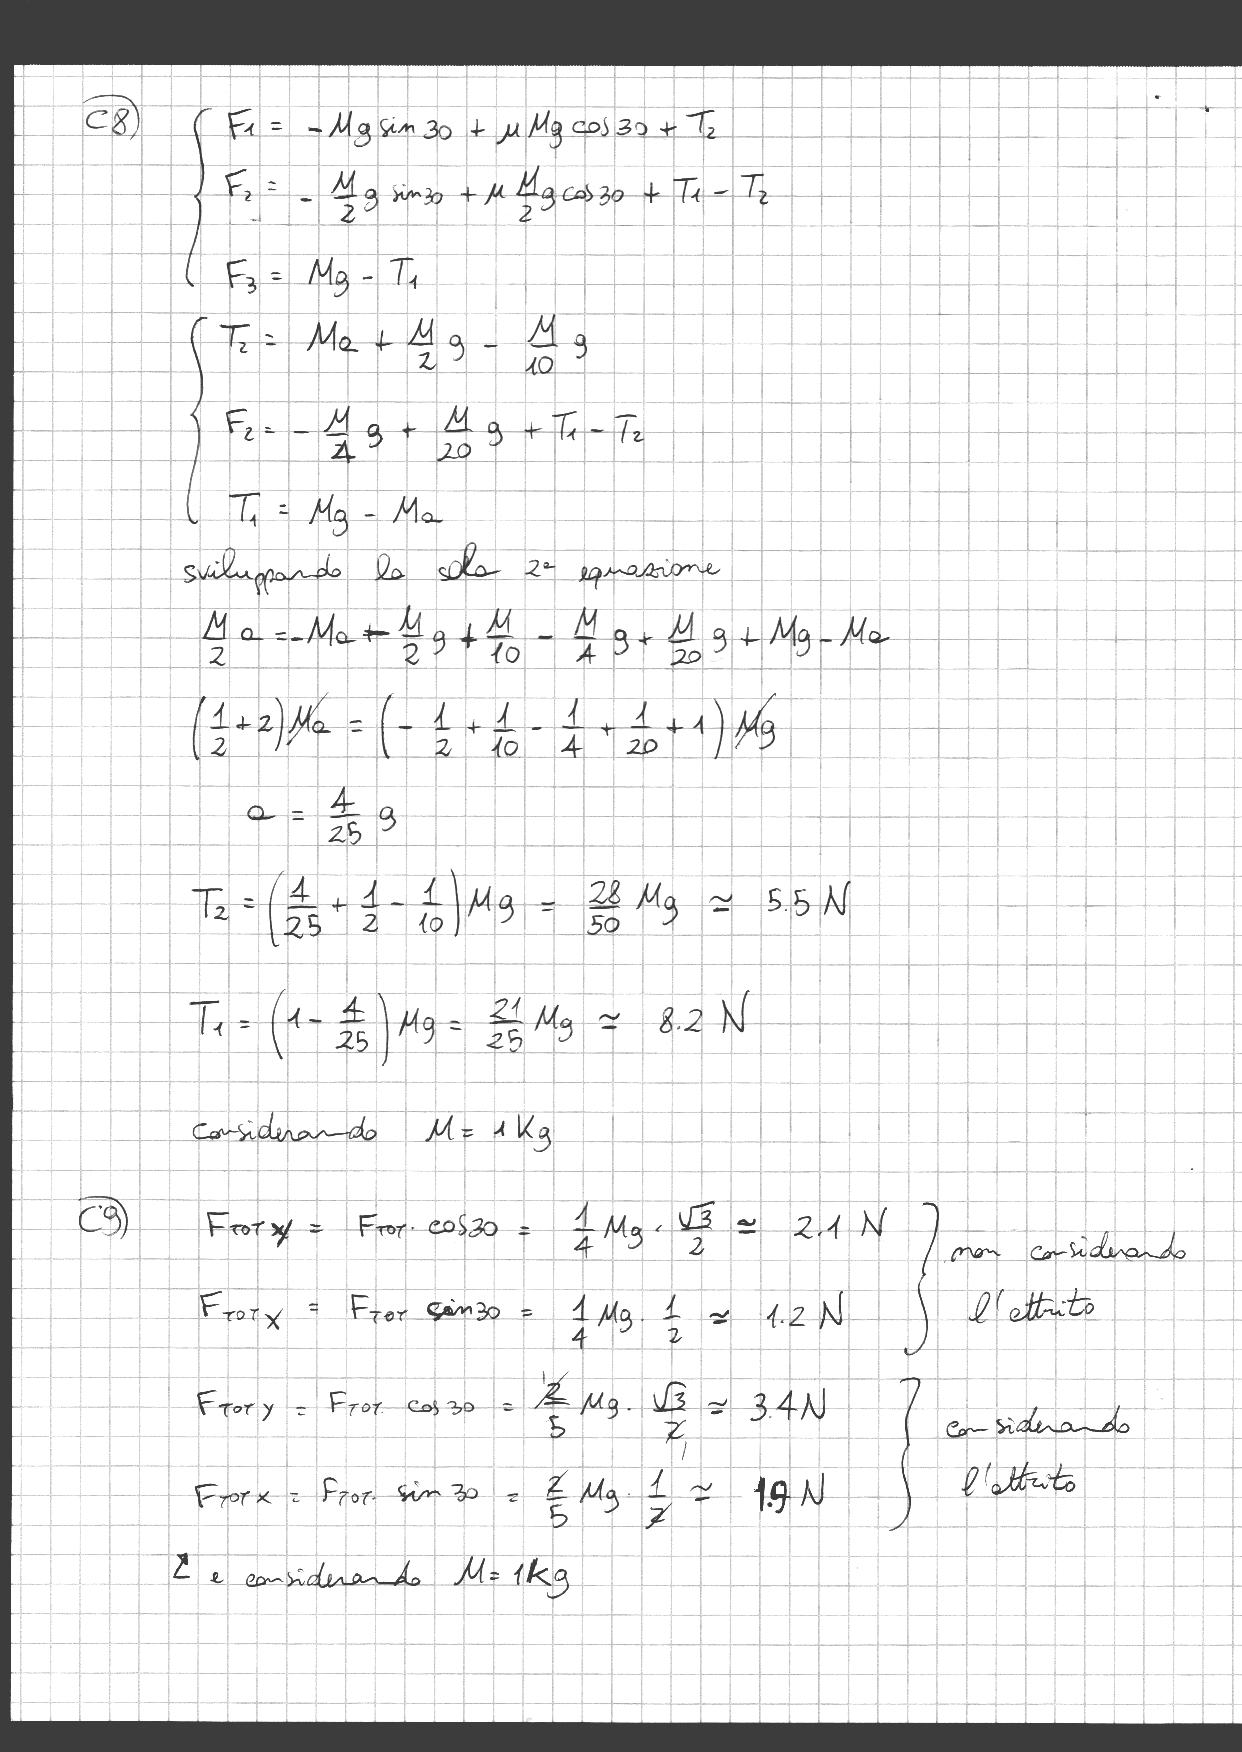 C8)
F1 = - Mg sin 30 + μ Mg cos 30 + T2
F2 = - M/2 g sin 30 + μ M/2 g cos 30 + T1 - T2
F3 = Mg - T1
T2 = Ma + M/2 g - M/10 g
F2 = - M/4 g + M/20 g + T1 - T2
T1 = Mg - Ma
sviluppando la sola 2ª equazione
M/2 a = - Ma - M/2 g + M/10 - M/4 g + M/20 g + Mg - Ma
(1/2 + 2) Ma = (- 1/2 + 1/10 - 1/4 + 1/20 + 1) Mg
a = 4/25 g
T2 = (4/25 + 1/2 - 1/10) Mg = 28/50 Mg ≃ 5.5 N
T1 = (1 - 4/25) Mg = 21/25 Mg ≃ 8.2 N
considerando M = 1 Kg
C9) FTOT y = FTOT. cos 30 = 1/4 Mg . √3/2 ≃ 2.1 N
non considerando
FTOT x = FTOT sin 30 = 1/4 Mg . 1/2 ≃ 1.2 N
l'attrito
FTOT y = FTOT. cos 30 = 2/5 Mg . √3/2 ≃ 3.4 N
considerando
FTOT x = FTOT. sin 30 = 2/5 Mg . 1/2 ≃ 1.9 N
l'attrito
e considerando M = 1 Kg